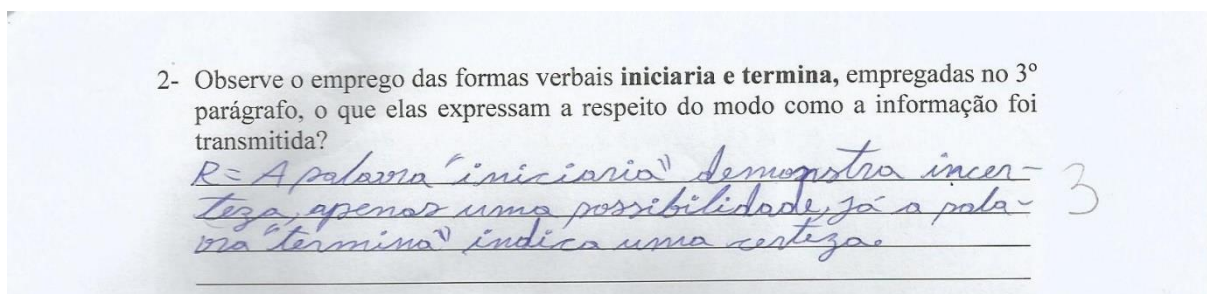 2- Observe o emprego das formas verbais iniciaria e termina, empregadas no 3º
parágrafo, o que elas expressam a respeito do modo como a informação foi
transmitida?
R= A palavra "iniciaria" demonstra incer-
teza, apenas uma possibilidade, já a pala-
vra "termina" indica uma certeza.
3